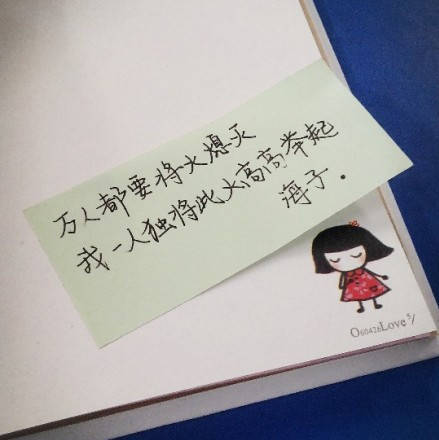 万人都要将火熄灭
我一人独将此火高高举起
海子.
O60426Love 5/